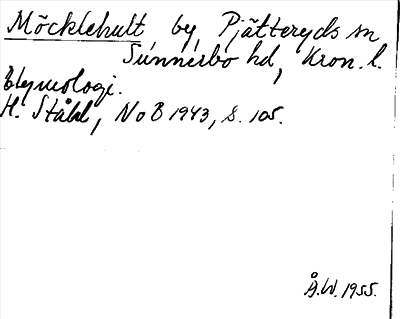 Möcklehult by, Pjätteryds sn
Sunnerbo hd, Kron. l.
Etymologi.
H. Ståhl, NoB 1943, s. 105.
Å.W. 1955.